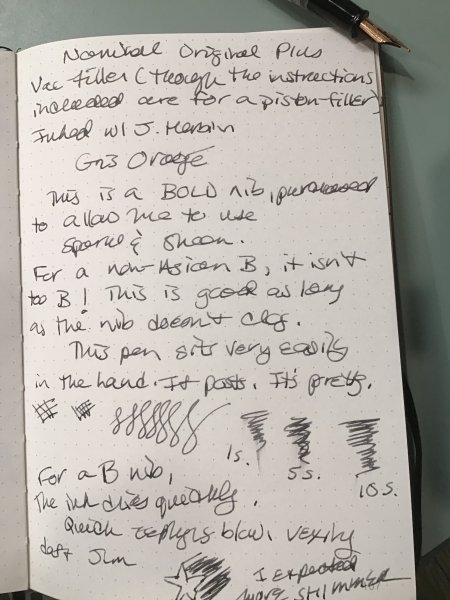 Nominal Original Plus
Vac filler (though the instructions
included are for a piston-filler)
Inked w/ J. Herbin
Gris Orage
This is a BOLD nib, purchased
to allow me to use
sparkle & sheen.
For a non-Asian B, it isn't
too B! This is good as long
as the nib doesn't clog.
This pen sits very easily
in the hand. It posts. It's pretty.
1s.
5s.
10s.
For a B nib,
the ink dries quickly.
Quick zephyrs blow, vexing
daft Jim
I expected
more SHIMMER